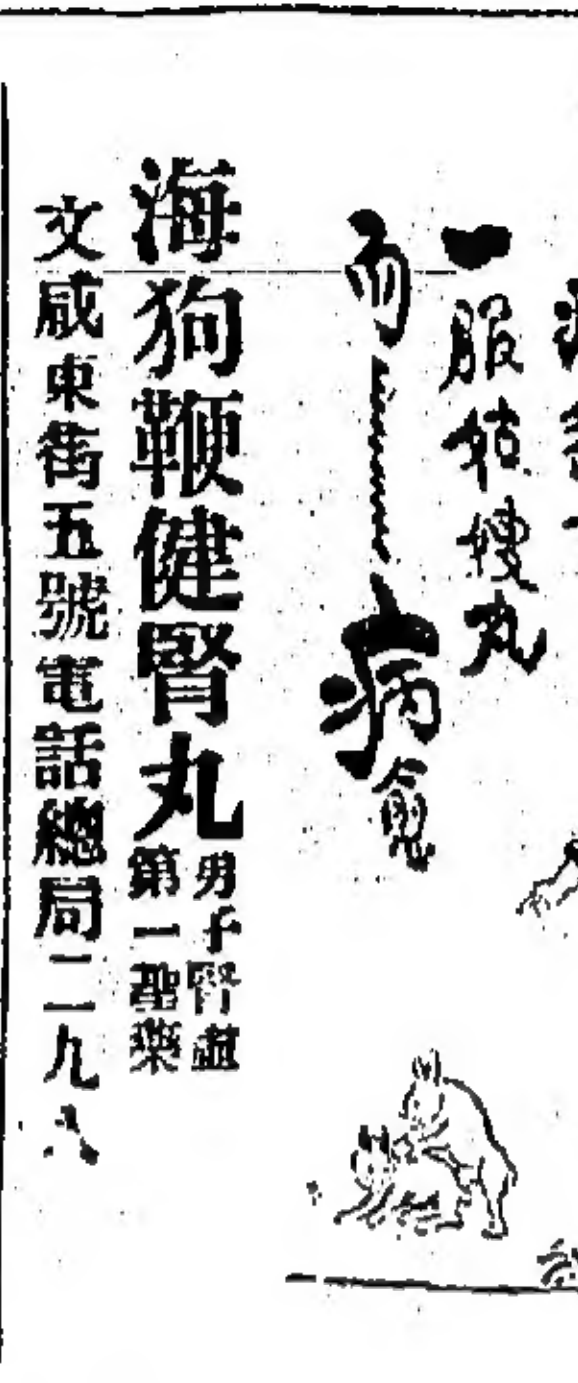 一服姑嫂丸
而病愈
海狗鞭健腎丸
男子腎虛
第一聖藥
文咸東街五號電話總局二九八